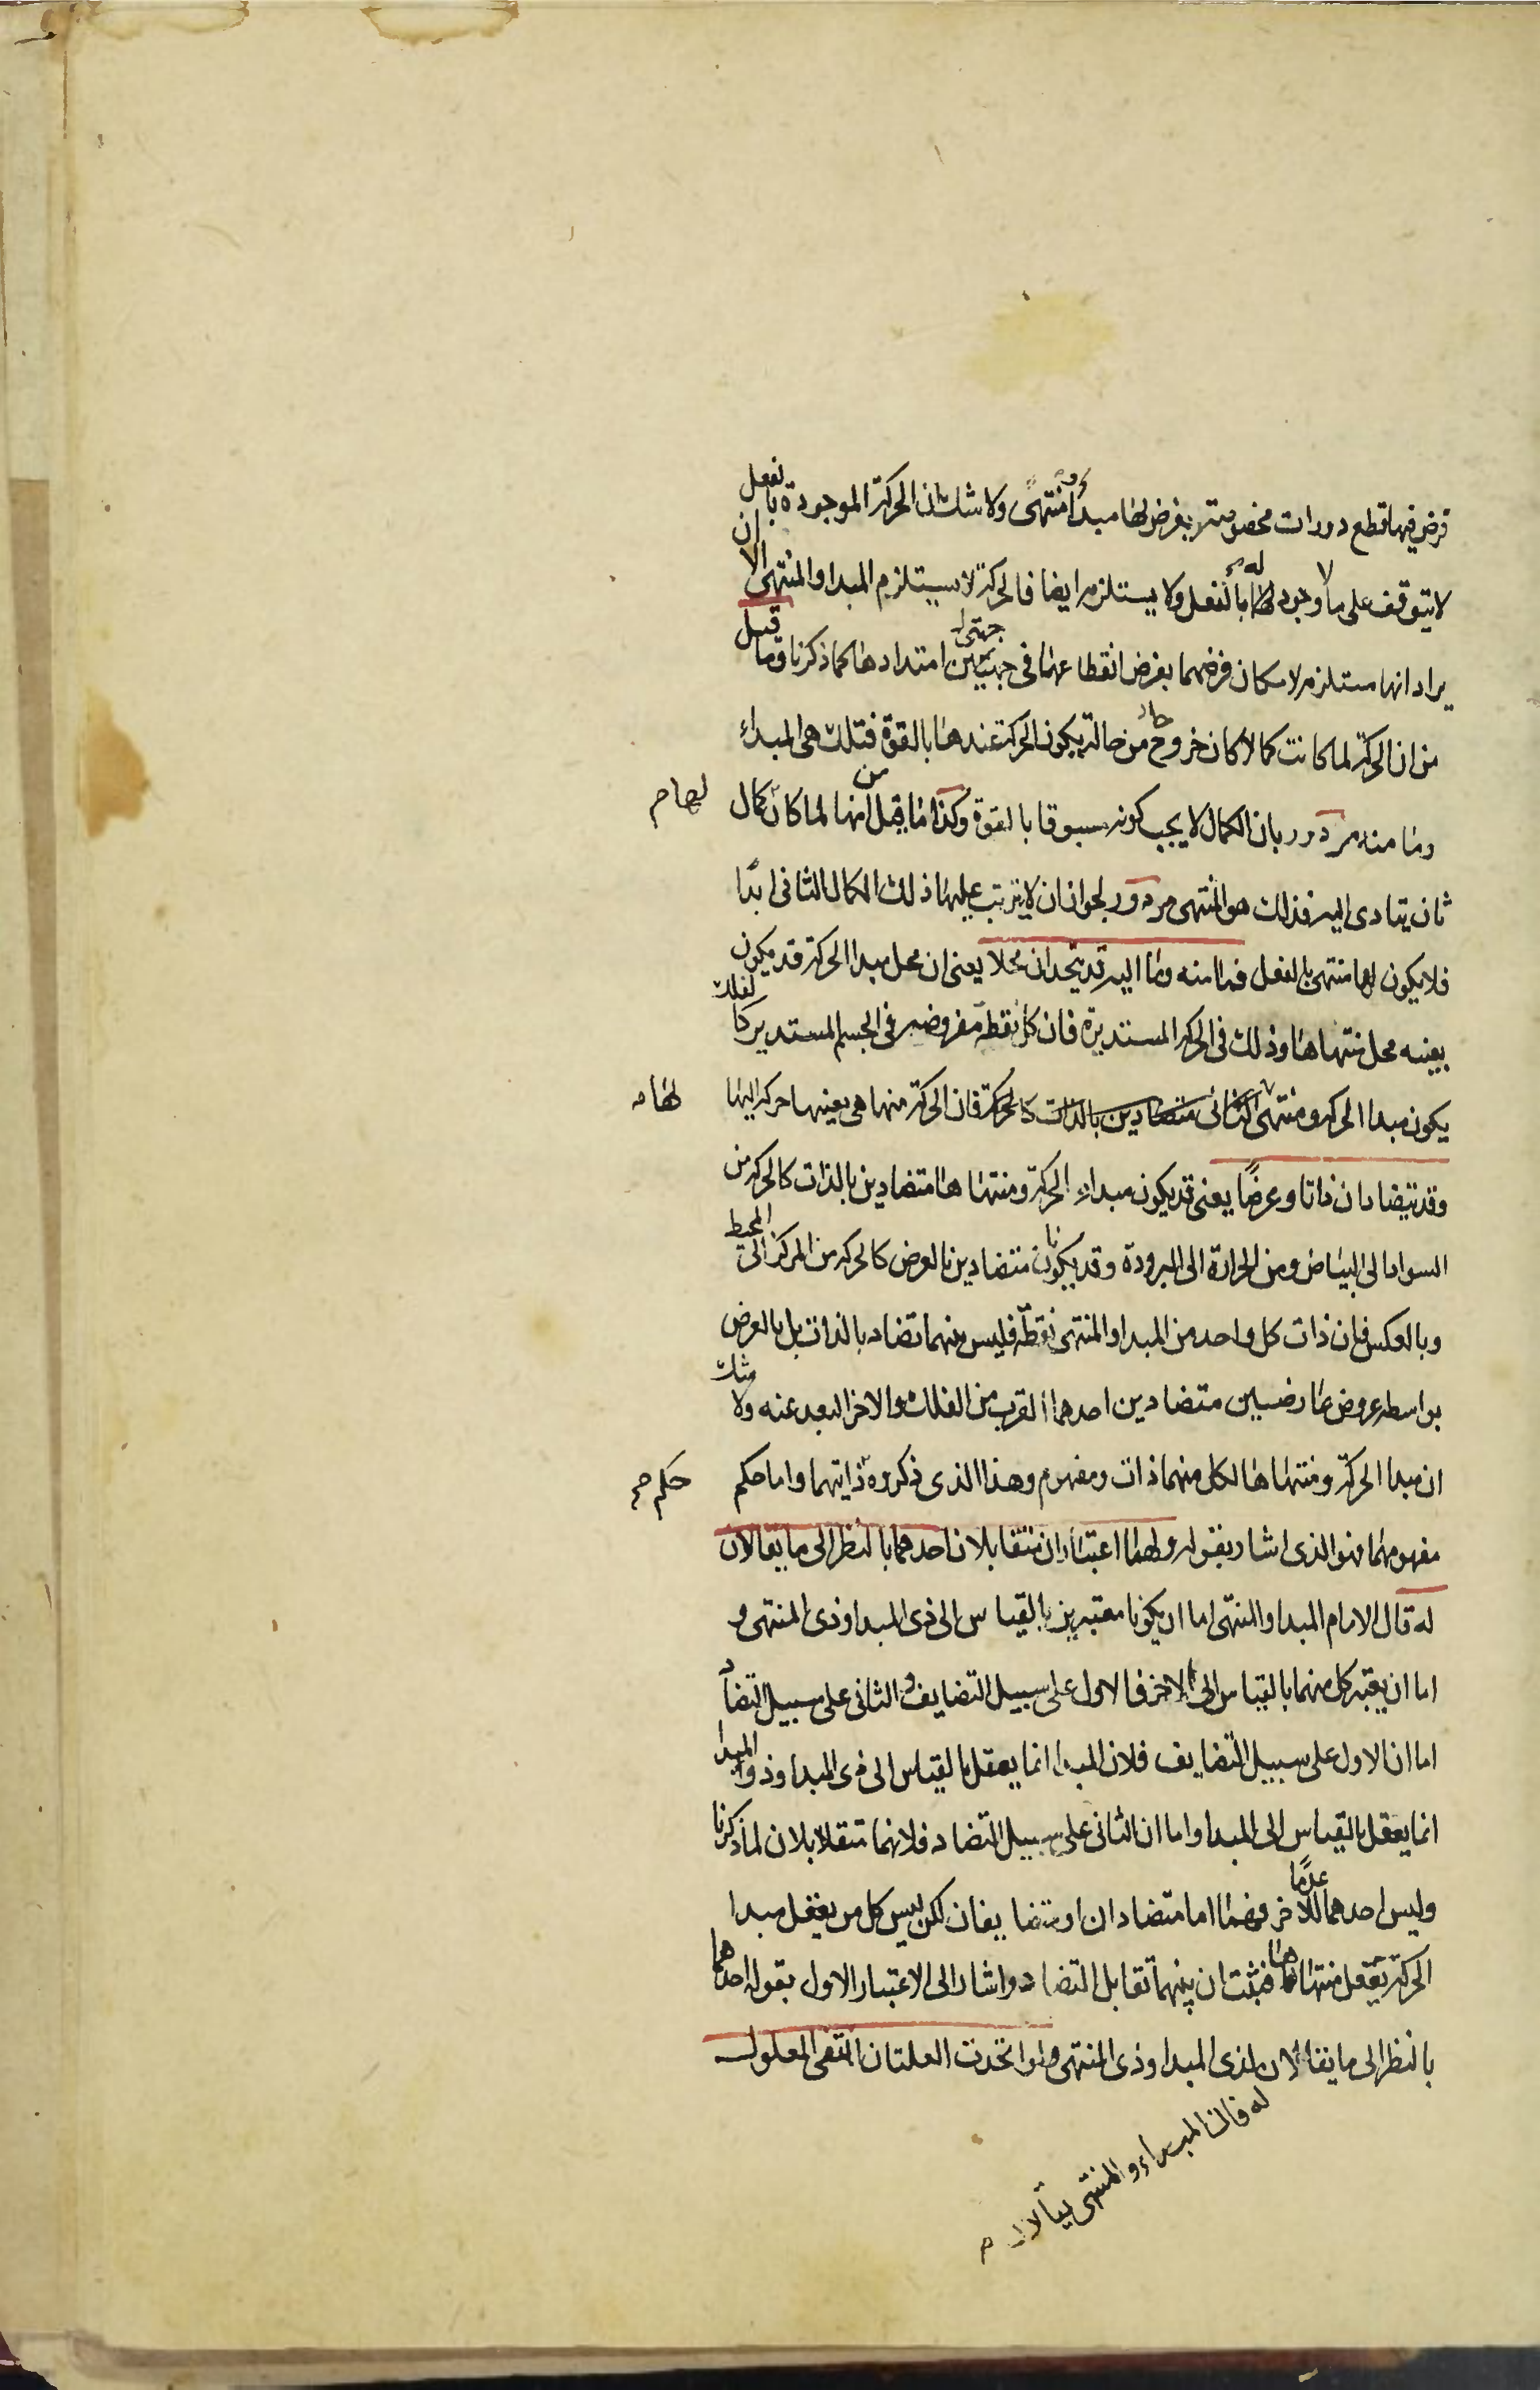 فرض فيها قطع دورات مخصوصة يفرض لها مبدأ ومنتهى ولا شك ان الحركة الموجودة بالفعل
لا يتوقف على ما لا وجود له بالفعل ولا يستلزمه ايضا فالحركة لا يستلزم المبدا والمنتهى الا ان
يراد انها مستلزم لامكان فرضهما بفرض انقطاعها في جهتى امتدادها كما ذكرنا وما قيل
من ان الحركة لما كانت كمالا كان خروجا من حالة يكون الحركة عندها بالقوة فتلك هى المبداء
وما منه مردود بان الكمال لا يجب كونه مسبوقا بالقوة وكذا ما قيل من انها لما كان كمال
لها م
ثان يتادى اليه فذلك هو المنتهى مردود لجواز ان لا يترتب عليها ذلك الكمال الثانى ابدا
فلا يكون لها منتهى بالفعل فما منه وما اليه قد يتحدان محلا يعنى ان محل مبدا الحركة قد يكون
بعينه محل منتهاها وذلك في الحركة المستديرة فان كل نقطة مفروضه في الجسم المستدير كالفلك
يكون مبدا الحركه ومنتهى لها متضادين بالذات كالحركة فان الحركة منها هى بعينها حركه اليها
لها م
وقد يتضادان ذاتا وعرضا يعنى قد يكون مبداء الحركة ومنتهاها متضادين بالذات كالحركه من
السواد الى البياض ومن الحرارة الى البرودة وقد يكونان متضادين بالعرض كالحركه من المركز الى المحيط
وبالعكس فان ذات كل واحد من المبدا والمنتهى نقطة فليس بينهما تضاد بالذات بل بالعرض
بواسطه عروض عارضين متضادين احدهما القرب من الفلك والاخر البعد عنه ولا شك
ان مبدا الحركة ومنتهاها لكل منهما ذات ومفهوم وهذا الذى ذكروه ذاتيهما واما حكم
حكم صح
مفهومهما فهو الذى اشار بقوله ولهما اعتباران متقابلان احدهما بالنظر الى ما يقالان
له قال الامام المبدا والمنتهى اما ان يكونا معتبرين بالقياس الى ذى المبدا وذى المنتهى و
اما ان يعتبر كل منهما بالقياس الى الاخر فالاول على سبيل التضايف والثانى على سبيل التضاد
اما ان الاول على سبيل التضايف فلان المبدا انما يعقل بالقياس الى ذى المبدا وذو المبدا
انما يعقل بالقياس الى المبدا واما ان الثانى على سبيل التضاد فلانهما متقابلان لما ذكرنا
وليس احدهما عدما للاخر فهما اما متضادان او متضايفان لكن ليس كل من يعقل مبدا
الحركة يعقل منتهاها فثبت ان بينهما تقابل التضاد واشار الى الاعتبار الاول بقوله احدهما
بالنظر الى ما يقالان لذى المبدا وذى المنتهى ولو اتحدت العلتان انتفى المعلول
له فان المبداء والمنتهى يقالان م